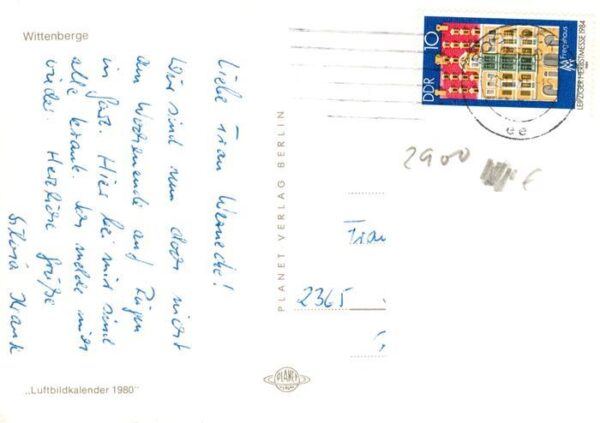 Wittenberge
Liebe Frau Warnecke!
Wir sind nun doch nicht
am Wochenende auf Rügen
in Garz. Hier bei mir sind
alle krank. Ich melde mich
wieder. Herzliche Grüße
Krank
„Luftbildkalender 1980"
PLANET VERLAG BERLIN
PLANET
DDR 10
Fregehaus
MM
LEIPZIGER HERBSTMESSE 1984
2900
Frau
2365